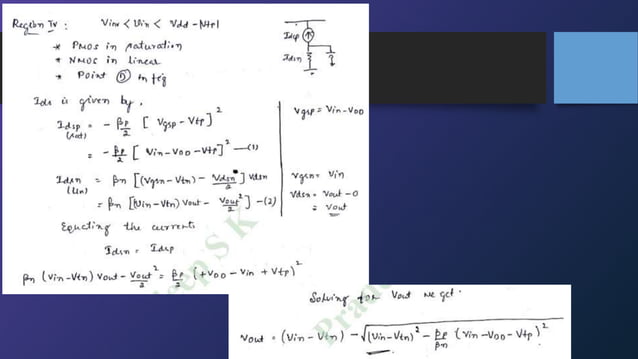 Region IV : Vinv < Vin < Vdd - |Vtp|
* PMOS in saturation
* NMOS in linear
* Point D in fig
Idsp
Idsn
Ids is given by,
Idsp = - βp/2 [Vgsp - Vtp]^2
(sat)
= - βp/2 [Vin - VDD - Vtp]^2 —(1)
Vgsp = Vin - VDD
Idsn = βn [(Vgsn - Vtn) - Vdsn/2] Vdsn
(lin)
= βn [(Vin - Vtn) Vout - Vout^2/2] —(2)
Vgsn = Vin
Vdsn = Vout - 0
= Vout
Equating the currents
Idsn = Idsp
βn (Vin - Vtn) Vout - Vout^2/2 = βp/2 (+VDD - Vin + Vtp)^2
Solving for Vout we get.
Vout = (Vin - Vtn) - √((Vin - Vtn)^2 - βp/βn (Vin - VDD - Vtp)^2)